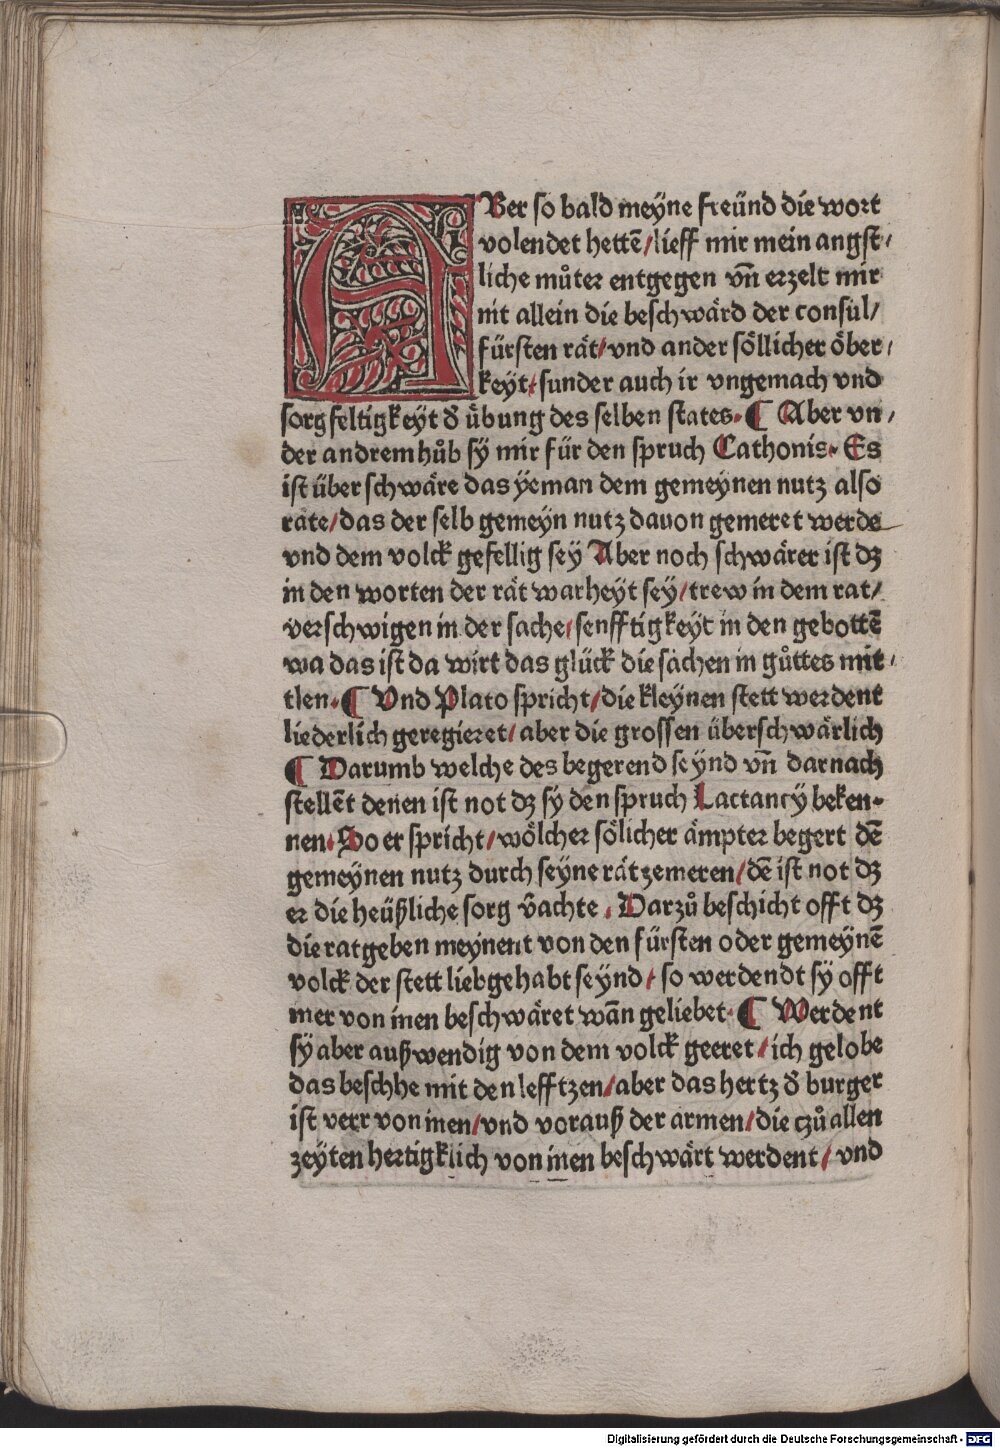 ABer so bald meyne freünd die wort
volendet hettē/ lieff mir mein angst/
liche můter entgegen vn̄ erzelt mir
nit allein die beschwärd der consul/
fürsten rät/ vnd ander söllicher öber/
keyt/ sunder auch ir vngemach vnd
sorgfeltigkeyt ď übung des selben states. ¶ Aber vn/
der andrem hůb sÿ mir für den spruch Cathonis. Es
ist über schwäre das ÿeman dem gemeynen nutz also
rate/ das der selb gemeyn nutz dauon gemeret werde
vnd dem volck gefellig seÿ Aber noch schwärer ist dz
in den worten der rät warheyt seÿ/ trew in dem rat/
verschwigen in der sache/ senfftigkeyt in den gebottē
wa das ist da wirt das glück die sachen in gůttes mit/
tlen. ¶ Vnd Plato spricht/ die kleynen stett werdent
liederlich geregieret/ aber die grossen überschwärlich
¶ Darumb welche des begerend seynd vn̄ darnach
stellēt denen ist not dz sÿ den spruch Lactancÿ beken-
nen. So er spricht/ wölcher sölicher ämpter begert dē
gemeynen nutz durch seyne rät zemeren/ dē ist not dz
er die heüßliche sorg v̄achte. Darzů beschicht offt dz
die ratgeben meynent von den fürsten oder gemeynē
volck der stett liebgehabt seynd/ so werdendt sÿ offt
mer von inen beschwäret wān geliebet. ¶ Werdent
sÿ aber außwendig von dem volck geeret/ ich gelobe
das beschhe mit den lefftzen/ aber das hertz ď burger
ist verr von inen/ vnd vorauß der armen/ die czů allen
zeyten hertigklich von inen beschwärt werdent/ vnd
Digitalisierung gefördert durch die Deutsche Forschungsgemeinschaft - DFG